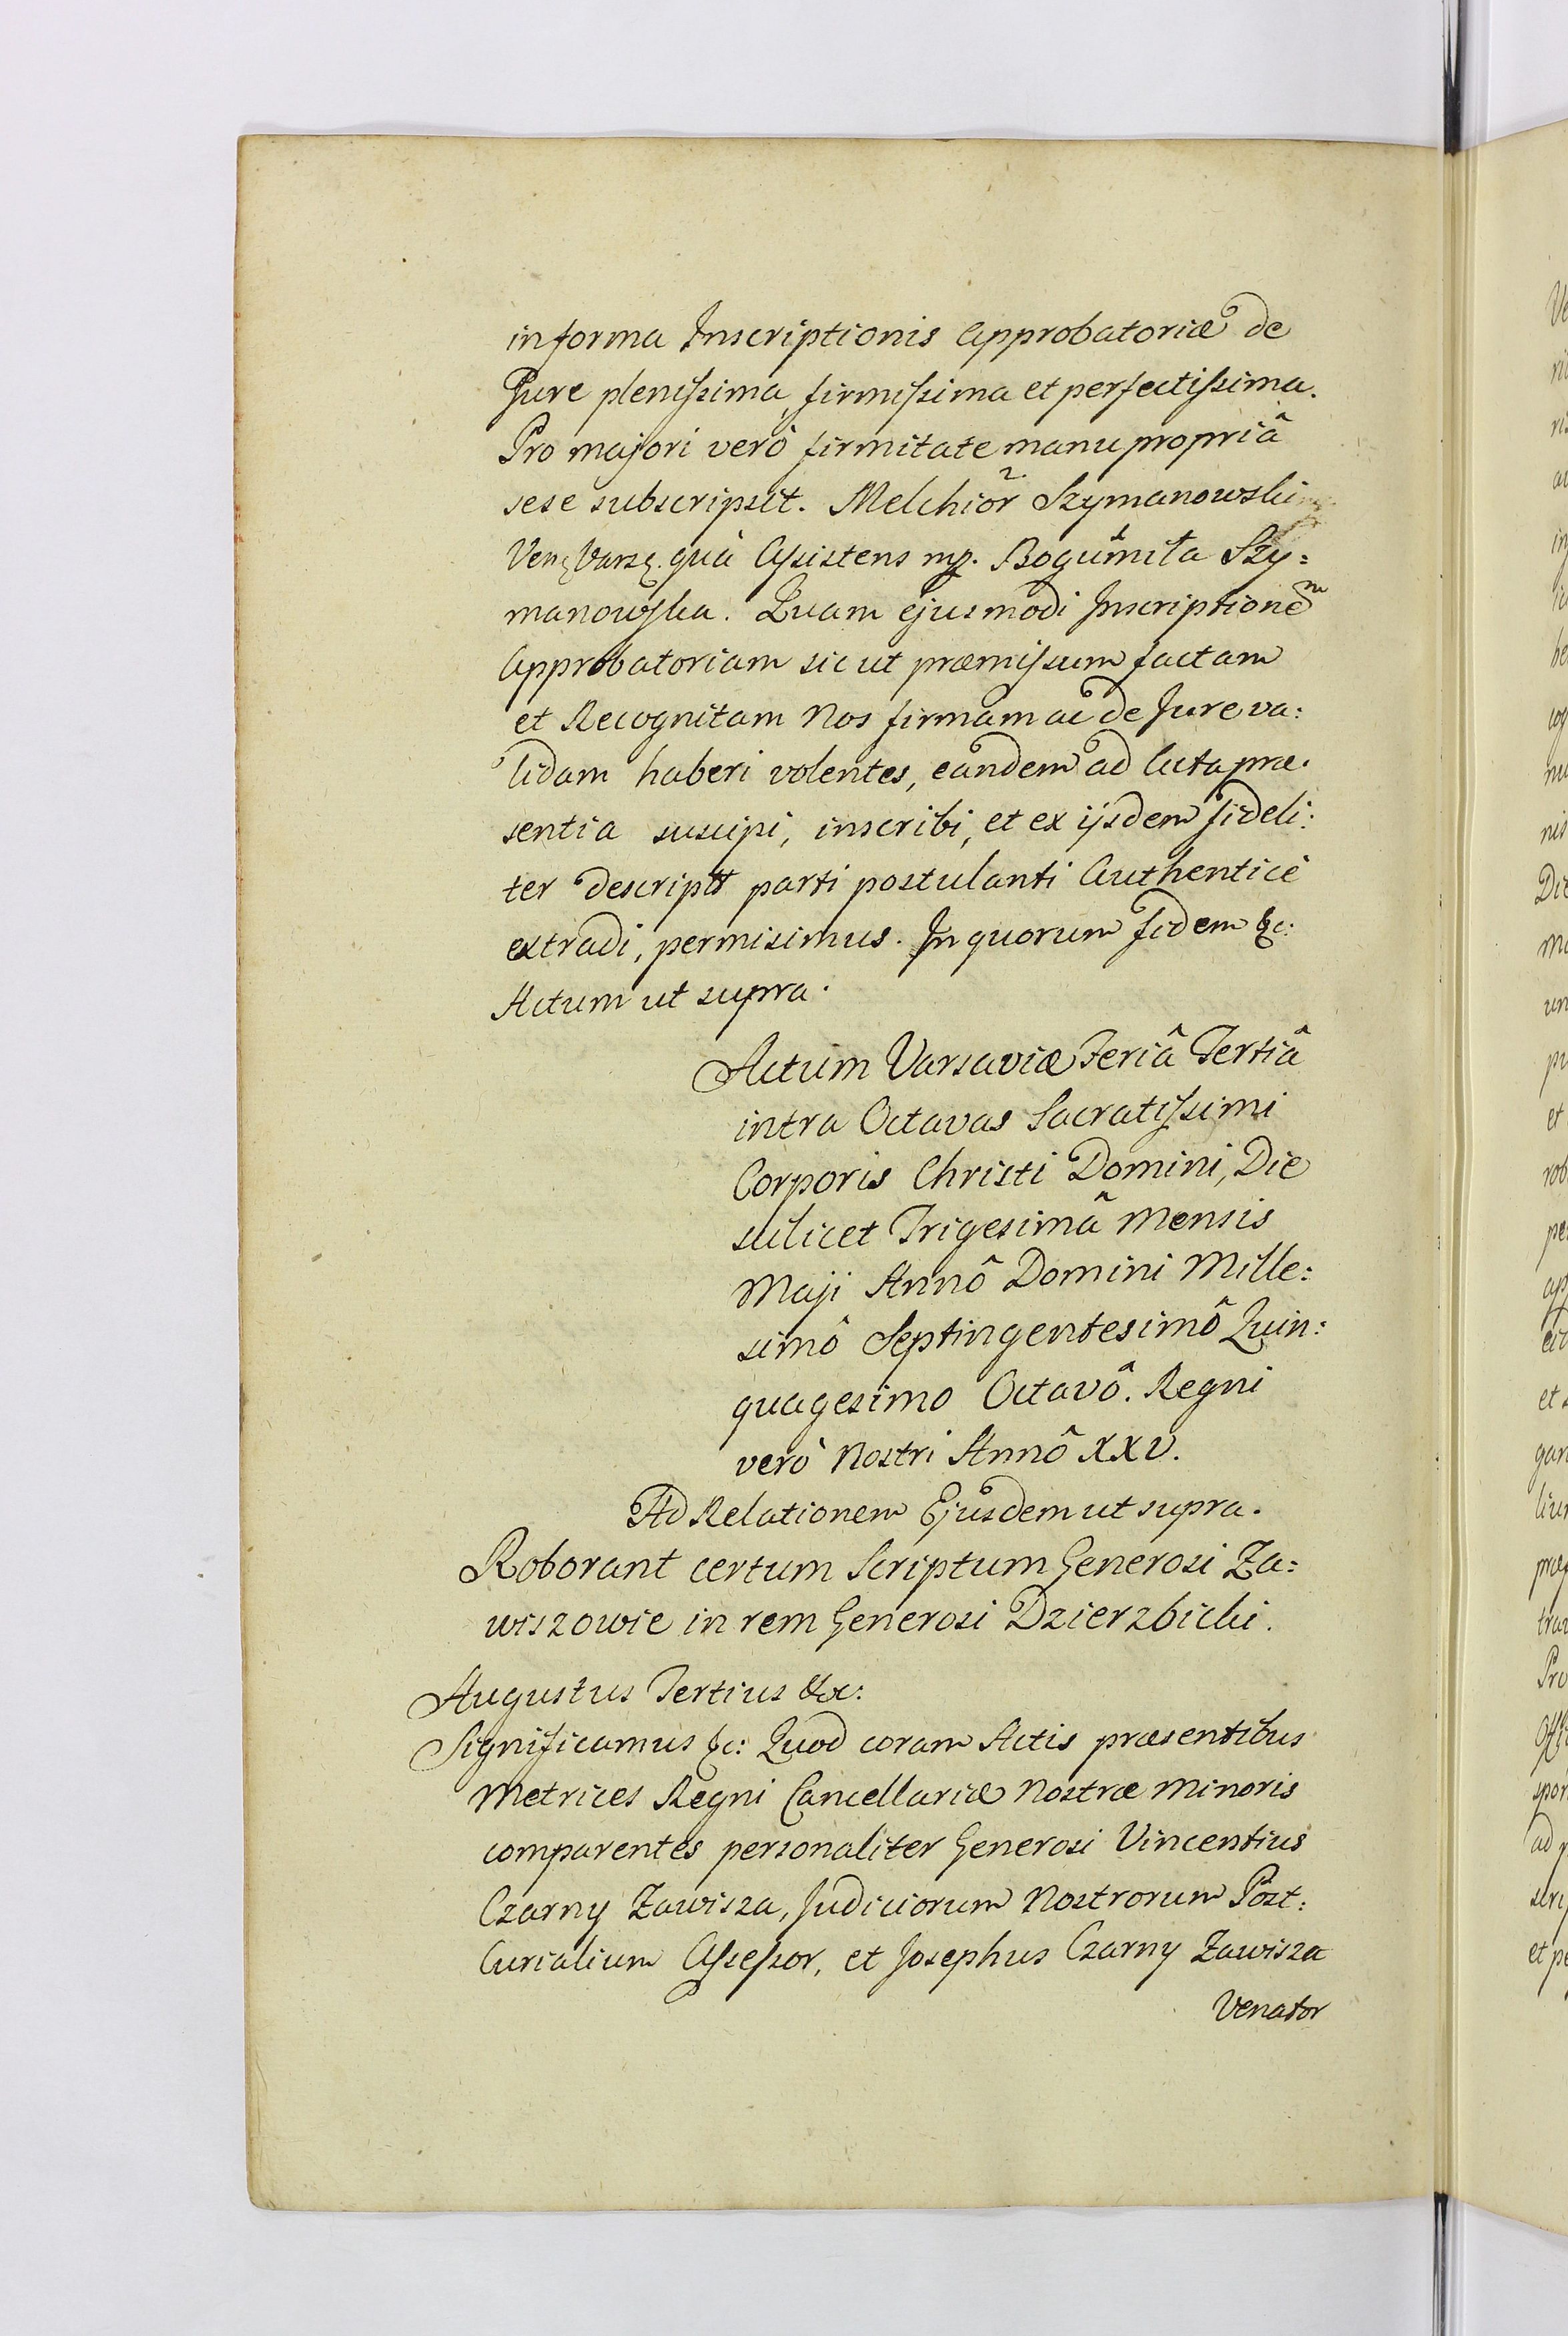 in forma Inscriptionis Approbatoriæ de
Jure plenissima, firmissima et perfectissima.
Pro majori verò firmitate manu propriâ
sese subscripsit. Melchior Szymanowski
Ven: Vars: quà Assistens mp. Bogumiła Szy:
manowska. Quam ejusmodi Inscriptionem
Approbatoriam sic ut præmissum factam
et Recognitam Nos firmam ac de Jure va:
lidam haberi volentes, eandem ad Acta præ:
sentia suscipi, inscribi, et ex ijsdem fideli:
ter descriptt parti postulanti Authenticè
extradi, permisimus. In quorum fidem &c:
Actum ut supra.
Actum Varsaviæ Feriâ Tertiâ
intra Octavas Sacratissimi
Corporis Christi Domini, Die
scilicet Trigesimâ Mensis
Maji Annô Domini Mille:
simô Septingentesimô Quin:
quagesimo Octavô. Regni
verò Nostri Annô XXV.
Ad Relationem Ejusdem ut supra.
Roborant certum Scriptum Generosi Za:
wiszowie in rem Generosi Dzierzbicki.
Augustus Tertius &c:
Significamus &c: Quod coram Actis præsentibus
Metrices Regni Cancellariæ Nostræ Minoris
comparentes personaliter Generosi Vincentius
Czarny Zawisza, Judiciorum Nostrorum Post:
Curialium Assessor, et Josephus Czarny Zawisza
Venator